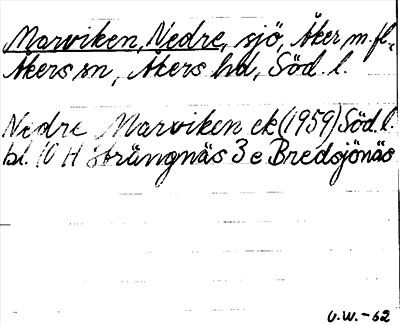 Marviken, Nedre, sjö, Åker m. fl.,
Åkers sn, Åkers hd, Söd. l.
Nedre Marviken ek (1959) Söd. l.
bl. 10 H Strängnäs 3 e Bredsjönäs
U.W.-62